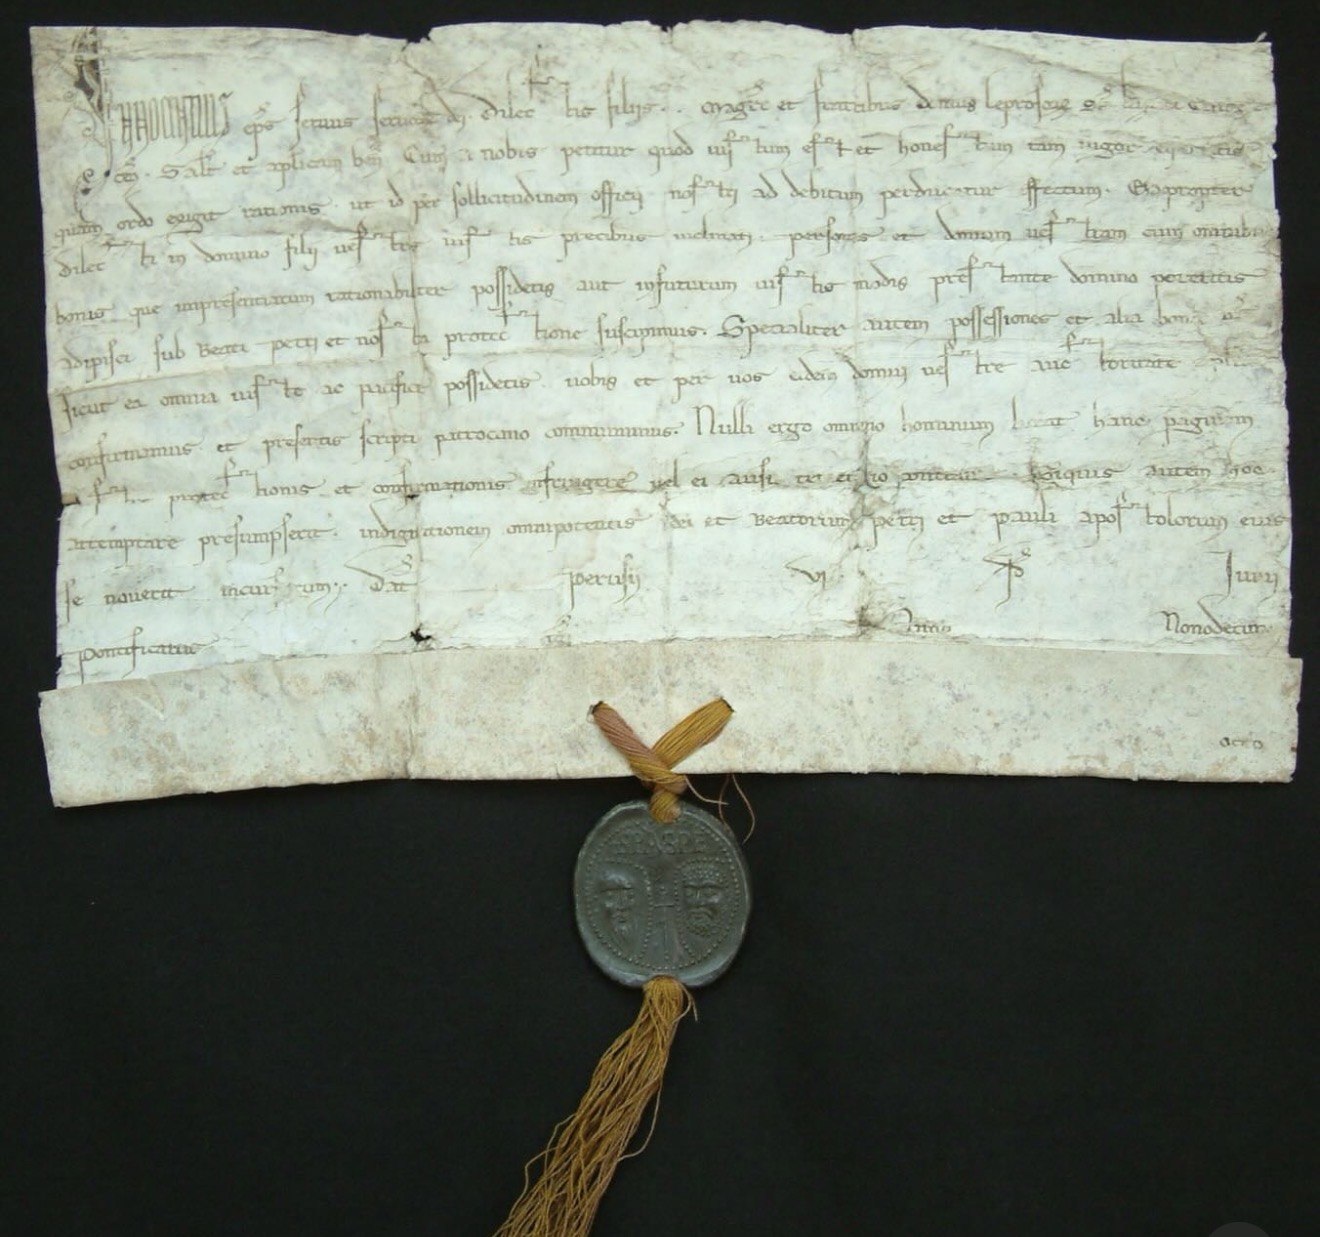 INNOCENTIUS ep̄s seruus seruoꝝ dī. Dilectis filiis .. Magr̄o et fratribus domus leprosoꝝ
Salt̄ et aplicam ben̄. Cum a nobis petitur quod iustum est et honestum tam uigor equitatis
quam ordo exigit rationis. ut id per sollicitudinem officii nostri ad debitum perducatur effectum. Eapropter
dilecti in domino filii uestris iustis precibus inclinati. personas et domum uestram cum omnibus
bonis que impresentiarum rationabiliter possidetis aut infuturum iustis modis prestante domino poteritis
adipisci sub Beati petri et nostra protectione suscipimus. Specialiter autem possessiones et alia bona ur̄a
sicut ea omnia iuste ac pacifice possidetis. uobis et per uos eidem domui uestre auctoritate
confirmamus. et presentis scripti patrocinio communimus. Nulli ergo omnino hominum liceat hanc paginam
protectionis et confirmationis infringere uel ei ausu contraire. Siquis autem hoc
attemptare presumpserit. indignationem omnipotentis dei et Beatorum petri et pauli apostolorum eius
se nouerit incursurum. Dat̄ perusii vi Junii
pontificatus nr̄i Anno Nonodecimo
octo
SPASPE